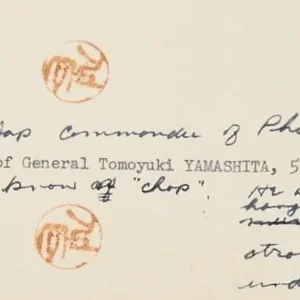 Jap commander of Phi
of General Tomoyuki YAMASHITA, 5
know of "chop". He
hang
atro
und